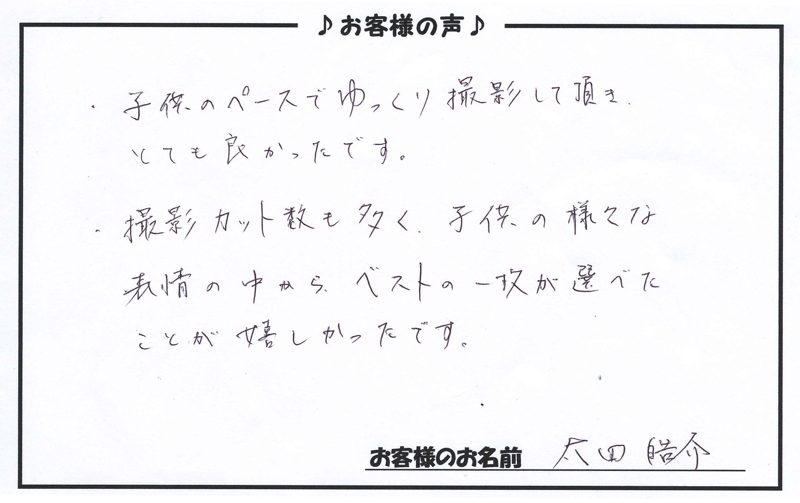 ♪お客様の声♪
・子供のペースでゆっくり撮影して頂き、
とても良かったです。
・撮影カット数も多く、子供の様々な
表情の中から、ベストの一枚が選べた
ことが嬉しかったです。
お客様のお名前 太田 皓介